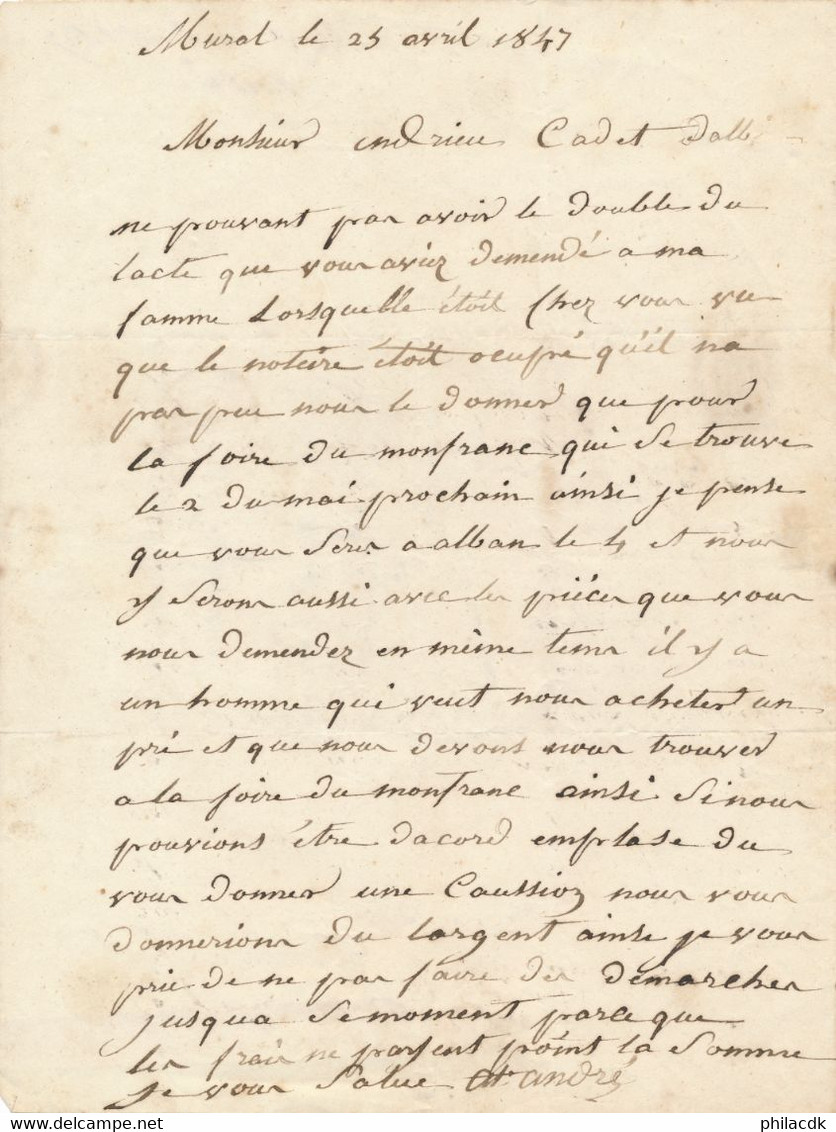 Murat le 25 avril 1847
Monsieur endrieu Cadet dalbi
ne pouvant pas avoir le double du
lacte que vous aviez demendé a ma
famme Lorsquelle étoit Chez vous vu
que le noteire étoit ocupé qu'il na
pas peu nous le donner que pour
la foire du monfranc qui se trouve
le 2 du mai prochain ainsi je pense
que vous seres a alban le 4 et nous
y serons aussi avec les piéces que vous
nous demendez en même tems il y a
un homme qui veut nous acheter un
pré et que nous devons nous trouver
a la foire du monfranc ainsi si nous
pouvions être dacord emplase du
vous donner une Caussion nous vous
donnerions du largent ainse je vous
prie de ne pas faire des démarches
jusqua semoment parce que
les frais ne pasent point la somme
je vous salue andré
philacdk